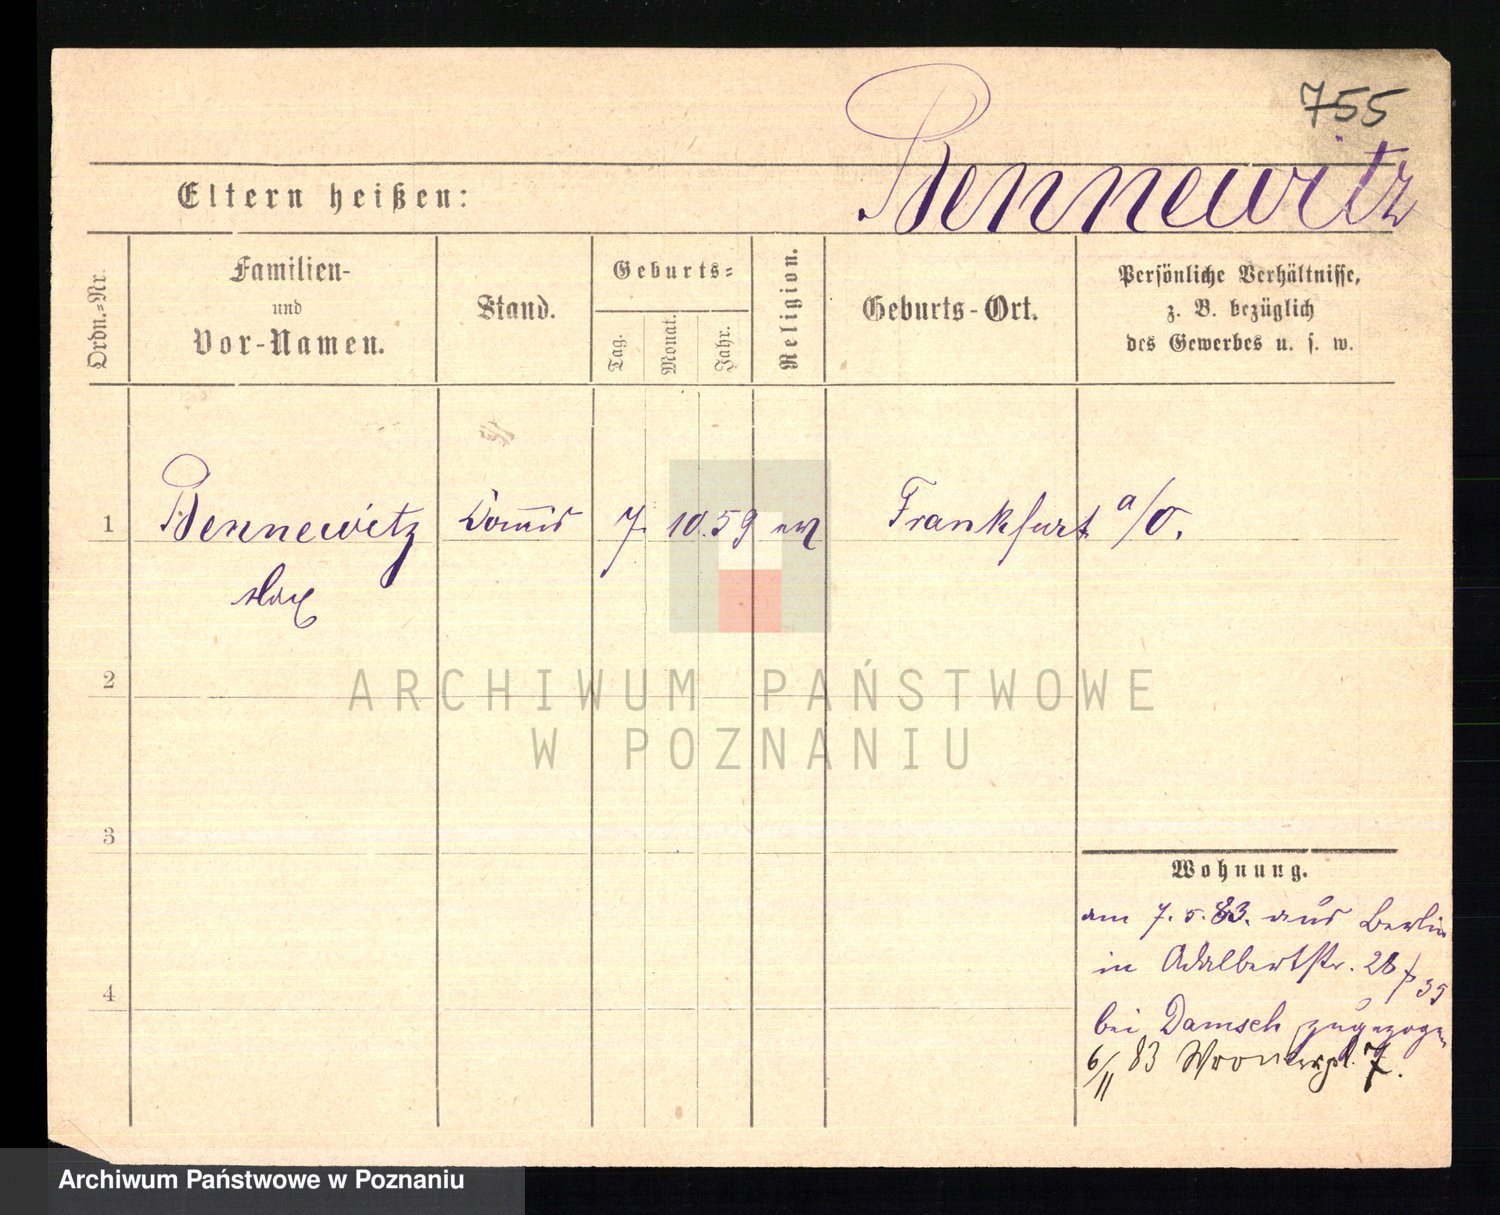 755
Bennewitz
Eltern heißen:
Ordn.-Nr.
Familien-
und
Vor-Namen.
Stand.
Geburts-
Tag.
Monat.
Jahr.
Religion.
Geburts-Ort.
Persönliche Verhältnisse,
z. B. bezüglich
des Gewerbes u. s. w.
1
Bennewitz Commis 7. 10. 59 ev Frankfurt a/O.
Max
2
ARCHIWUM PAŃSTWOWE
W POZNANIU
3
Wohnung.
am 7. 5. 83. aus Berlin
in Adalbertstr. 28
bei Damsch zugezogen
4
6/11 83 Wronkerpl. 7.
Archiwum Państwowe w Poznaniu